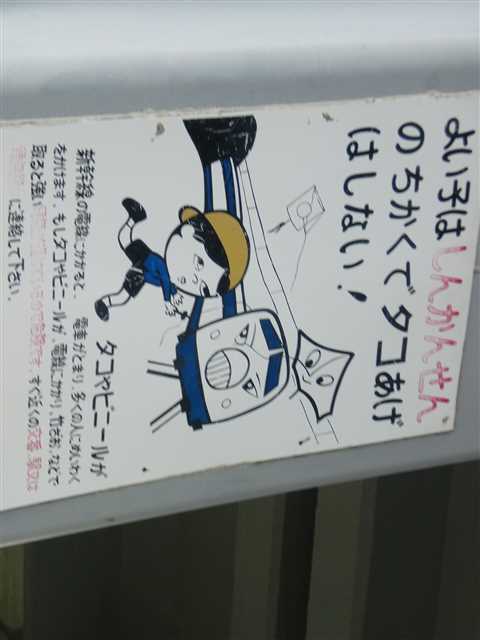 よい子はしんかんせん
のちかくでタコあげ
はしない!
タコやビニールが
新幹線の電線にかかると、電車がとまり、多くの人にめいわく
をかけます。もしタコやビニールが、電線にかかり、竹ざお、などで
取ると強い
危険です。すぐ近くの交番、駅又は
に連絡して下さい。